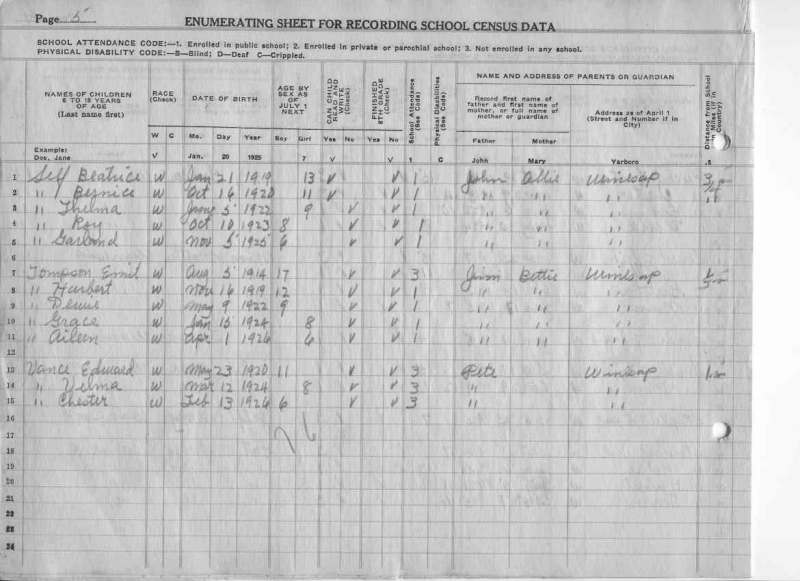 Page 5
ENUMERATING SHEET FOR RECORDING SCHOOL CENSUS DATA
SCHOOL ATTENDANCE CODE:—1. Enrolled in public school; 2. Enrolled in private or parochial school; 3. Not enrolled in any school.
PHYSICAL DISABILITY CODE:—B—Blind; D—Deaf C—Crippled.
NAMES OF CHILDREN 6 TO 18 YEARS OF AGE (Last name first) RACE (Check) DATE OF BIRTH AGE BY SEX AS OF JULY 1 NEXT CAN CHILD READ AND WRITE (Check) FINISHED 8TH GRADE (Check) School Attendance (See Code) Physical Disabilities (See Code) NAME AND ADDRESS OF PARENTS OR GUARDIAN Distance from School in Miles (if in Country)
Record first name of father and first name of mother, or full name of mother or guardian Address as of April 1 (Street and Number if in City)
W C Mo. Day Year Boy Girl Yes No Yes No Father Mother
Example:
Doe, Jane V Jan. 20 1925 7 V V 1 C John Mary Yarboro .5
1 Self Beatrice W Jan 21 1919 13 V V 1 John Ollie Winesap
2 " Bernice W Oct 16 1920 11 V V 1 " " "
3 " Thelma W 5 1922 9 V V 1 " " "
4 " Roy W Oct 10 1923 8 V V 1 " " "
5 " Garland W Nov 5 1925 6 V V 1 " " "
6
7 Tompson Emil W Aug 5 1914 17 V V 3 Jim Bettie Winesap
8 " Hurbert W Nov 16 1919 12 V V 1 " " "
9 " W May 9 1922 9 V V 1 " " "
10 " Grace W Jan 15 1924 8 V V 1 " " "
11 " Aileen W Apr 1 1926 6 V V 1 " " "
12
13 Vance Edward W May 23 1920 11 V V 3 Pete Winesap
14 " Velma W Mar 12 1924 8 V V 3 " "
15 " Chester W Feb 13 1926 6 V V 3 " "
16
17
18
19
20
21
22
23
24